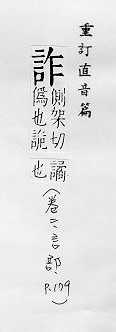 重訂直音篇
詐
側架切
偽也詭
譎
也
(卷二言部
P.109)